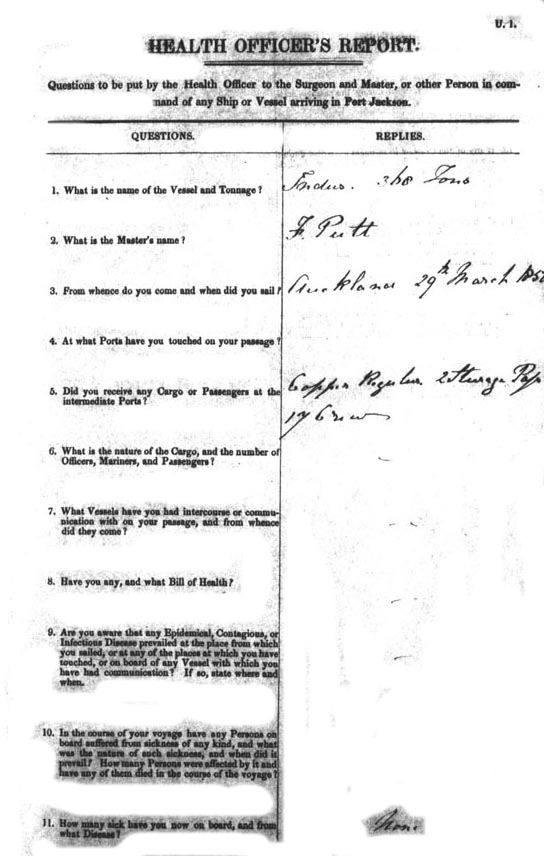 U. 1.
HEALTH OFFICER'S REPORT.
Questions to be put by the Health Officer to the Surgeon and Master, or other Person in com-
mand of any Ship or Vessel arriving in Port Jackson.
QUESTIONS.
REPLIES.
1. What is the name of the Vessel and Tonnage?
Indus. 368 Tons
2. What is the Master's name?
F. Putt
3. From whence do you come and when did you sail?
Auckland 29th March 185
4. At what Ports have you touched on your passage?
5. Did you receive any Cargo or Passengers at the
intermediate Ports?
Copper Regulus. 2 Steerage
17 Crew
6. What is the nature of the Cargo, and the number of
Officers, Mariners, and Passengers?
7. What Vessels have you had intercourse or commu-
nication with on your passage, and from whence
did they come?
8. Have you any, and what Bill of Health?
9. Are you aware that any Epidemical, Contagious, or
Infectious Disease prevailed at the place from which
you sailed, or at any of the places at which you have
touched, or on board of any Vessel with which you
have had communication? If so, state where and
when.
10. In the course of your voyage have any Persons on
board suffered from sickness of any kind, and what
was the nature of such sickness, and when did it
prevail? How many Persons were affected by it and
have any of them died in the course of the voyage?
11. How many sick have you now on board, and from
what Disease?
None